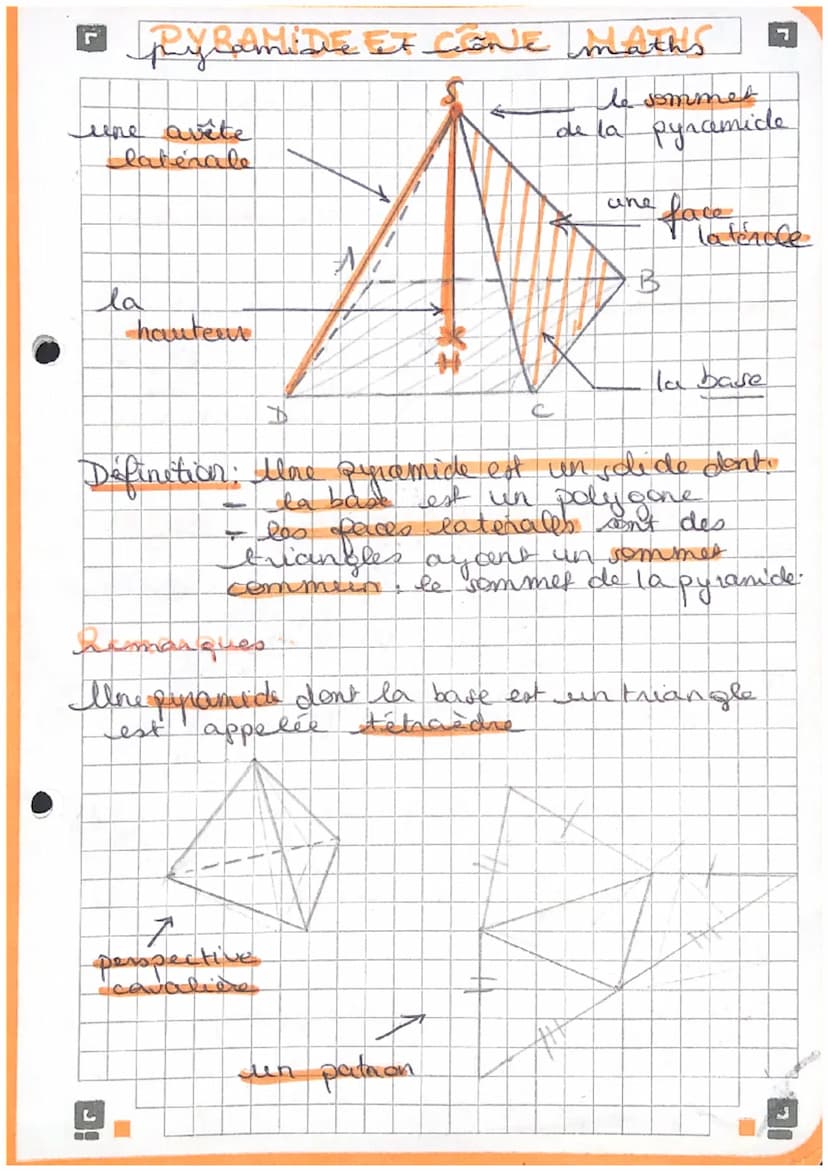 PYRAMIDE ET CÔNE MATHS
pyramide et cône maths
S
le sommet
de la pyramide
une arête
latérale
une face
latérale
A
B
la
hauteur
H
la base
D
C
Définition: Une pyramide est un solide dont:
- la base est un polygone
- les faces latérales sont des
triangles ayant un sommet
commun : le sommet de la pyramide.
Remarques
Une pyramide dont la base est un triangle
est appelée tétraèdre
perspective
cavalière
un patron